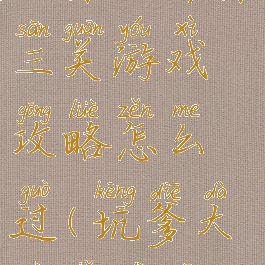 sān guān yóu xì
三关游戏
gōng lüè zěn me
攻略怎么
guò kēng diē dà
过(坑爹大